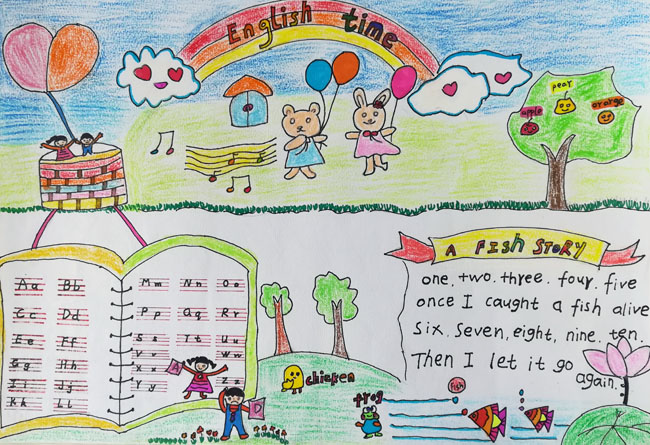 English time
pear
apple
orange
Aa Bb
Cc Dd
Ee Ff
Gg Hh
Ii Jj
Kk Ll
Mm Nn Oo
Pp Qq Rr
Ss Tt Uu
Vv Ww
Xx
Yy Zz
A
D
chicken
frog
A FISh STORY
one. two. three. four. five
once I caught a fish alive
Six. Seven, eight, nine. ten.
Then I let it go
again.
fish